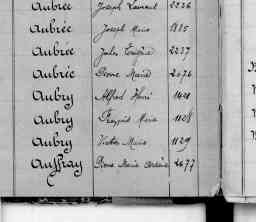 Aubrée Joseph Laurent 2236
Aubrée Joseph Marie 1885
Aubrée Jules Eugène 2237
Aubrée Pierre Marie 2074
Aubry Alfred Henri
Aubry François Marie 1128
Aubry Victor Marie 1129
Auffray Pierre Marie 2477